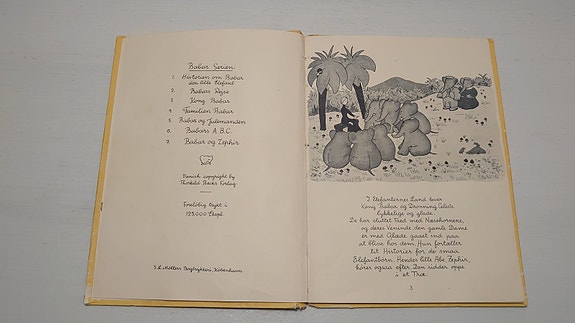 Babar Serien:
1. Historien om Babar
den lille Elefant
2. Babars Rejse
3. Kong Babar
4. Familien Babar
5. Babar og Julemanden
6. Babars A.B.C.
7. Babar og Zephir
Danish copyright by
Thorkild Becks Forlag
Foreløbig trykt i
125.000 Ekspl.
S.L. Møllers Bogtrykkeri, København
I Elefanternes Land lever
Kong Babar og Dronning Celeste
lykkelige og glade.
De har sluttet Fred med Næsehornene,
og deres Veninde den gamle Dame
er med Glæde gaaet ind paa
at blive hos dem. Hun fortæller
tit Historier for de smaa
Elefantbørn. Hendes lille Abe, Zephir,
hører ogsaa efter. Den sidder oppe
i et Træ.
3